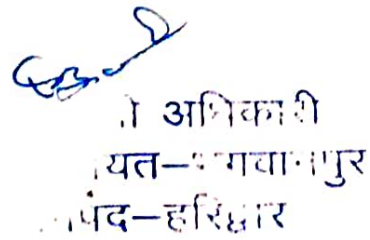 अधिकारी
यत-भगवानपुर
पद-हरिद्वार